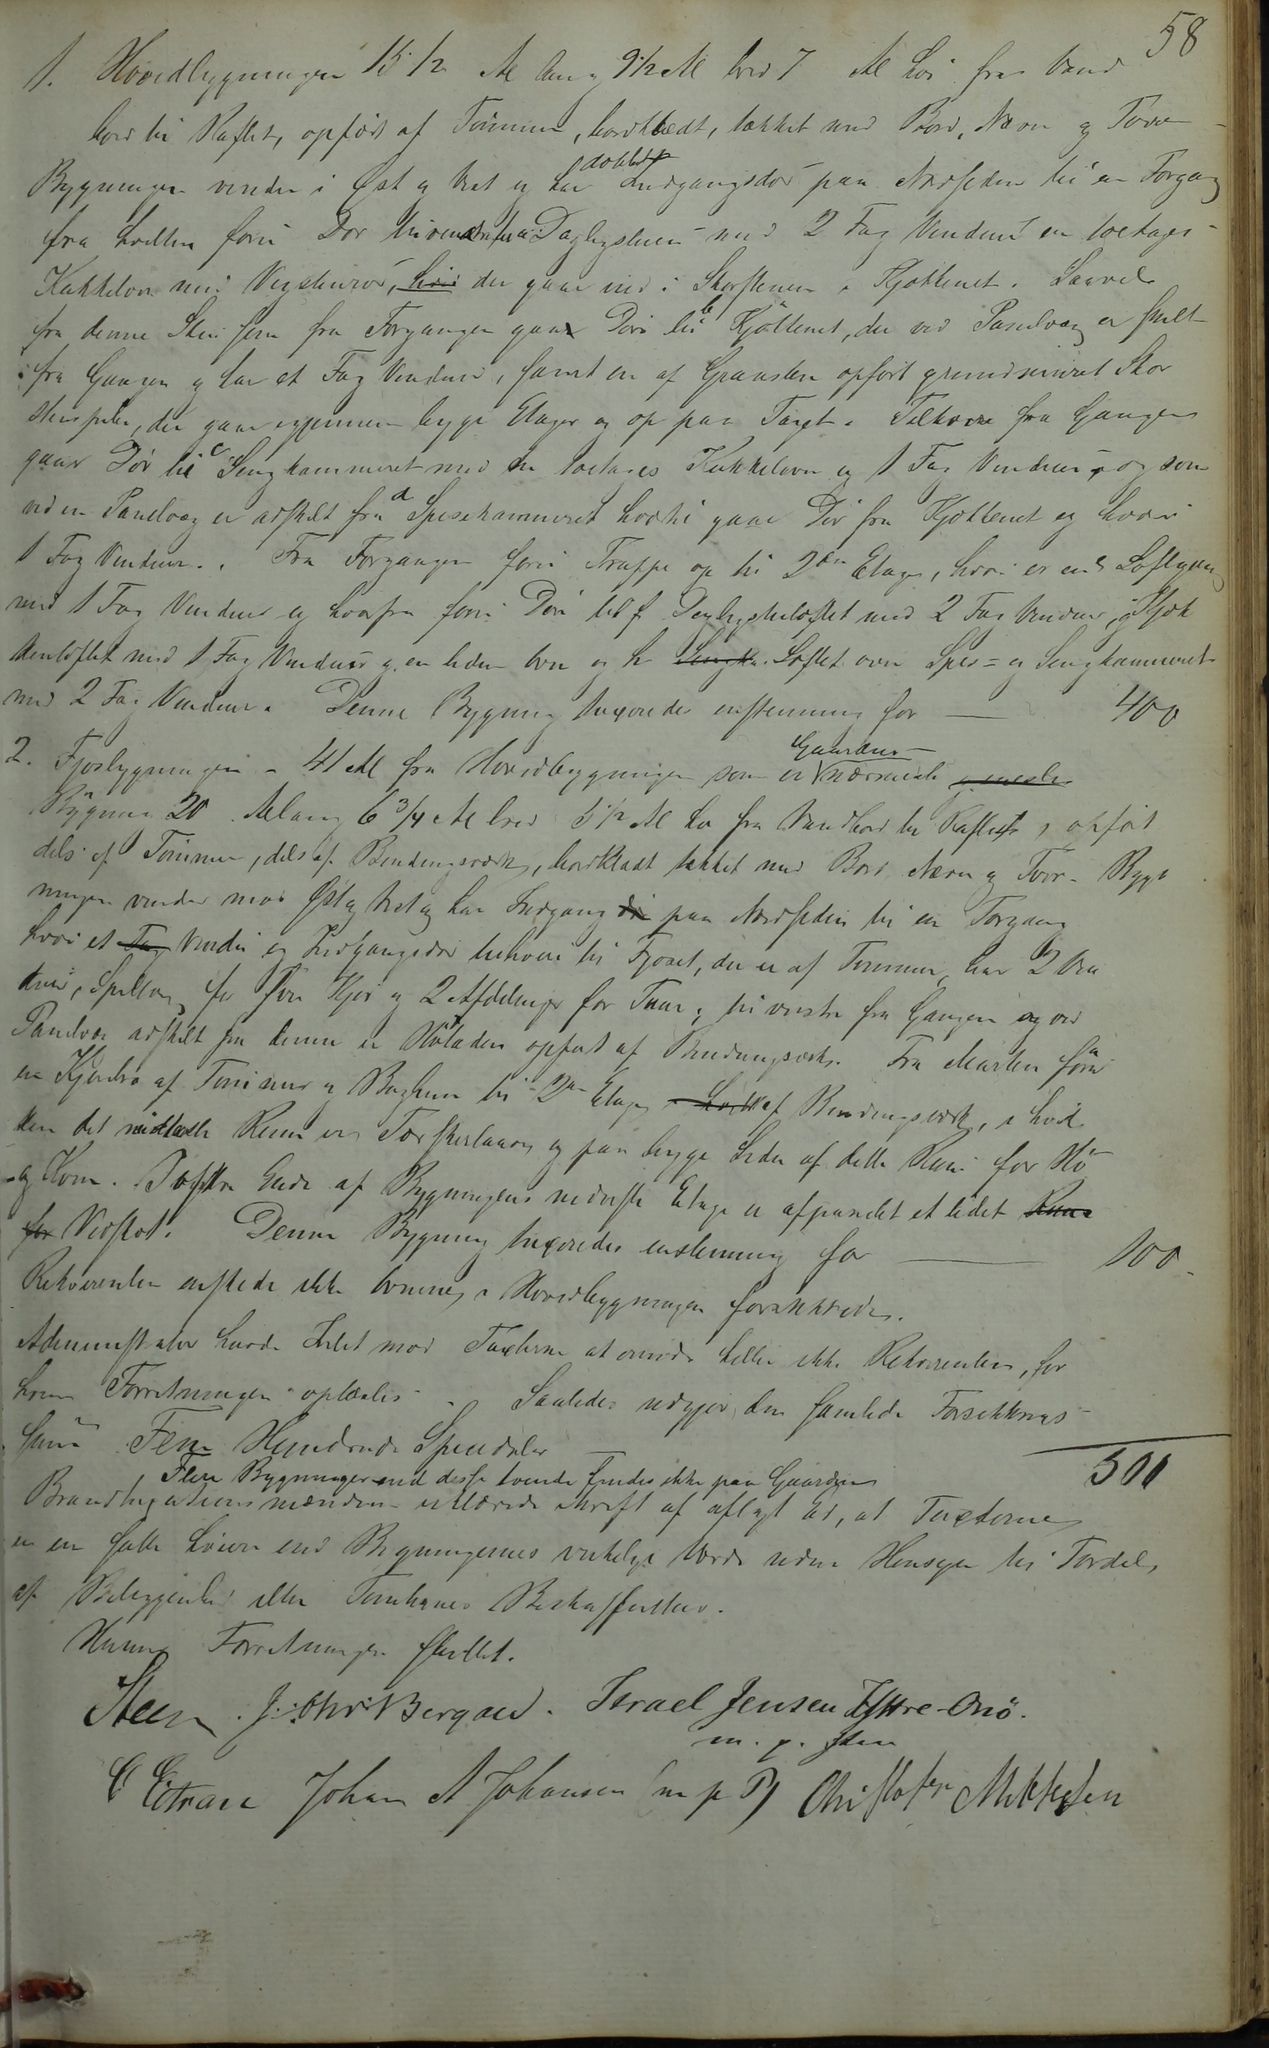 58
1. Hovedbygningen 15 1/2 Al lang 9 1/2 Al bred 7 Al høi fra Vand
bord til Raftet, opført af Tømmer, bordklædt, tækket med Bord, Næver og Torv
dobbelt
Bygningen vender i Øst og Vest og har Indgangsdør paa Nordsiden til en Forgang
fra hvilken fører Dør til venstre ind i a Daglystuen med 2 Fag Vinduer en toetages
Kakkelovn med Vegstensrør, hvis der gaar ind i Skorstenen i Kjøkkenet. Saavel
fra denne Stue som fra Forgangen gaar Dør til b Kjøkkenet, der ved Panelvæg er skilt
fra Gangen og har et Fag Vinduer, samt en af Graasten opført grundmuret Skor
stenspibe, der gaar igjennem begge Etager og op paa Taget. Tilhøire fra Gangen
gaar Dør til c Sengkammeret med en toetages Kakkelovn og 1 Fag Vinduer, og som
ved en Panelvæg er adskilt fra d Spisekammeret hvortil gaar Dør fra Kjøkkenet og hvori
1 Fag Vinduer. Fra Forgangen fører Trappe op til 2den Etage, hvori er en e Loftgang
med 1 Fag Vinduer og hvorfra fører Dør til f Daglystueloftet med 2 Fag Vinduer, g Kjøk
kenloftet med 1 Fag Vinduer og en liden Ovn og h Sengka Loftet over Spise- og Sengkammeret
med 2 Fag Vinduer. Denne Bygning taxeredes enstemmig for — 400
Gaardens
2. Fjøsbygningen - 41 Al fra Hovedbygningen som er nærmeste
Bygning 20 Al lang 6 3/4 Al bred 5 1/2 Al høi fra Vandbord til Raftet, opført
dels af Tømmer, dels af Bindingsværk, bordklædt tækket med Bord, Næver og Torv. Byg
ningen vender mod Øst og Vest og har Indgang paa Nordsiden til en Forgang
hvori et Fag Vindu og Indgangsdør tilhøire til Fjøset, der er af Tømmer, har 2 Vin
duer, Spiltoug for fire Kjør og 2 Afdelinger for Faar; til venstre fra Gangen og ved
Panelvæg adskilt fra denne er Høladen opført af Bindingsværk. Fra Marken fører
en Kjørebro af Tømmer og Bakhun til 2den Etage, af Bindingsværk, i hvil
ken det midterste Rum er Tærskerlaave og paa begge Sider af dette Rum for Hø
og Korn. I østre Ende af Bygningens nederste Etage er afpanelet et lidet Rum
for Vedskot. Denne Bygning taxeredes enstemmig for — 100
Rekvirenten ønskede ikke Ovnene i Hovedbygningen forsikkrede.
Administrator havde Intet mod Taxterne at erindre heller ikke Rekvirenten, for
hvem Forretningen oplæstes. Saaledes udgjør den samlede Forsikkrings
sum Fem Hundrede Speciedaler 500
Flere Bygninger end disse tvende findes ikke paa Gaarden
Brandtaxationsmændene erklærede i Kraft af aflagt Ed, at Taxterne
er en satte høiere end Bygningernes virkelige Værdi uden Hensyn til Fordel,
af Beliggenhed eller Tomtenes Beskaffenhed.
Hermed Forretningen sluttet.
Steen. J. Chr Bergaed. Israel Jensen Yttre-Onö.
m. p. Pen
C Eitran Johan A Johansen (m p P) Christofer Mikkelsen